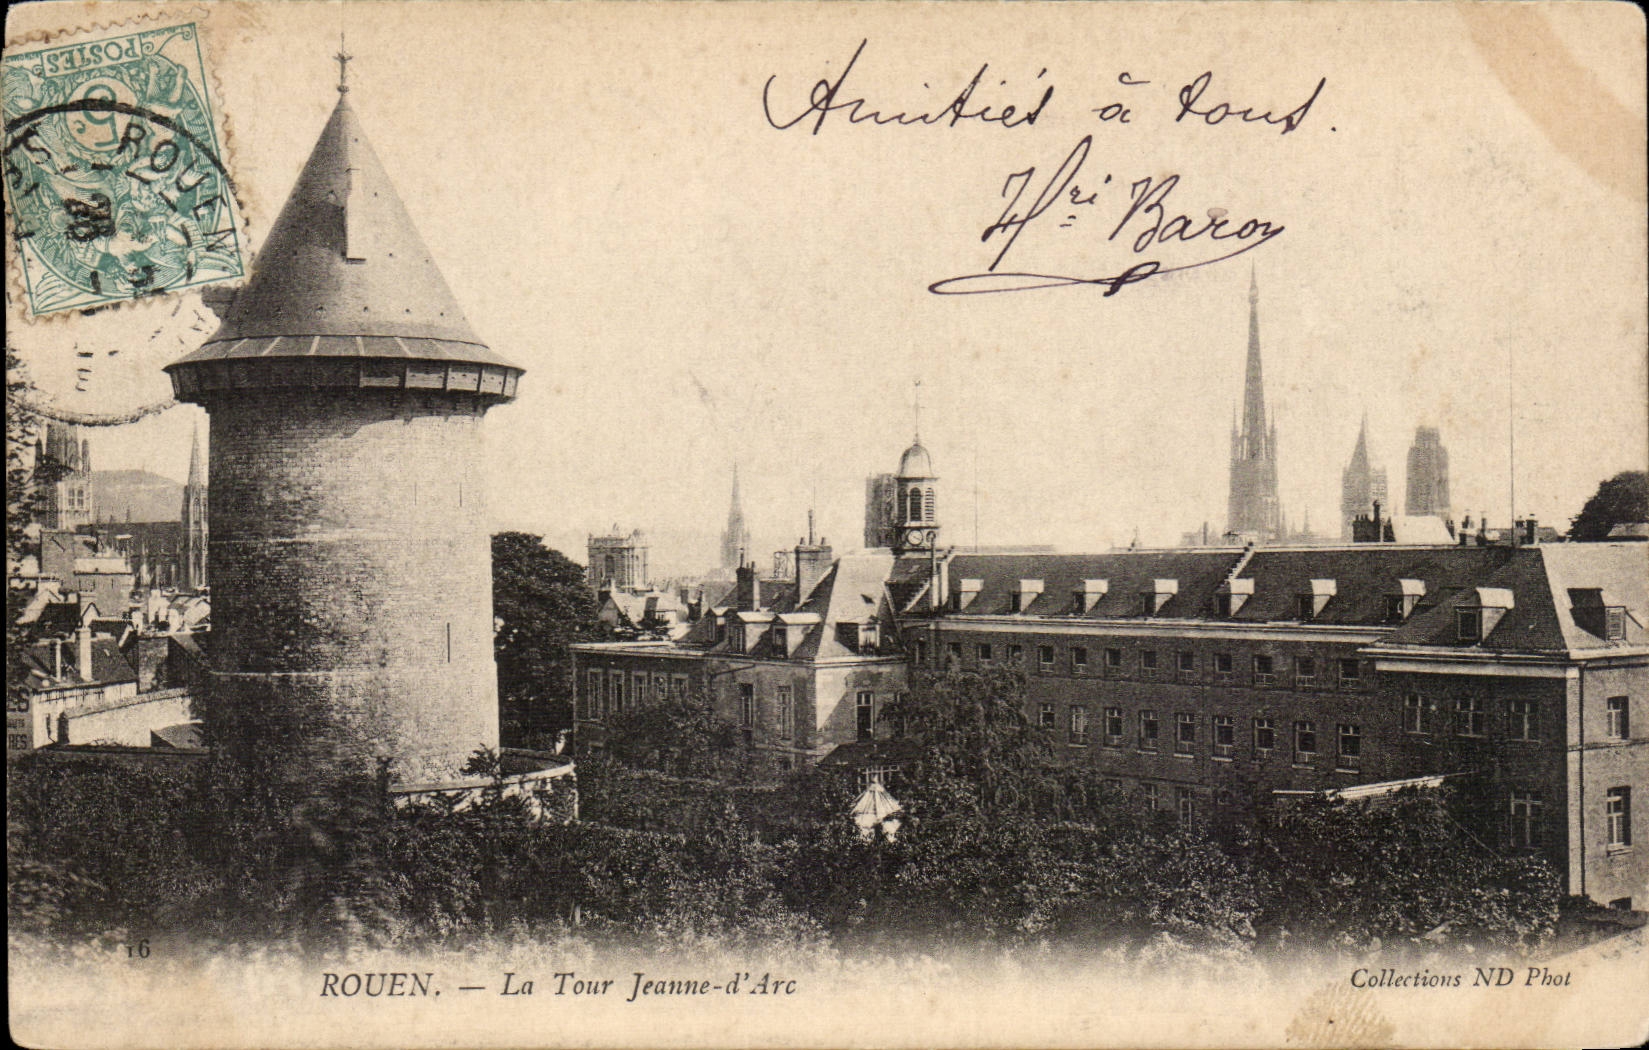 POSTES
5
ROUEN
Amitiés à tous.
Hri Baron
16
ROUEN. — La Tour Jeanne-d'Arc
Collections ND Phot